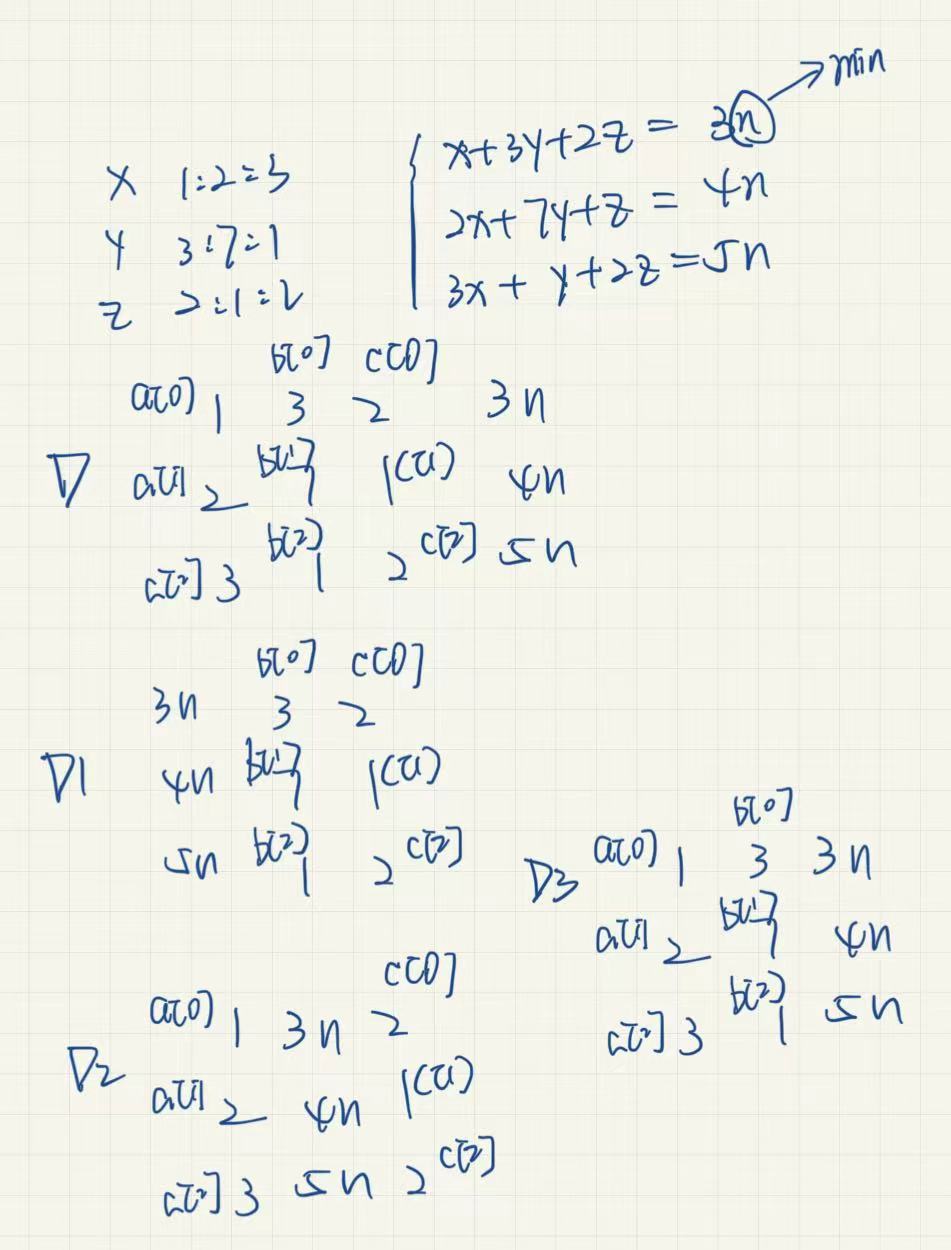 → min
x+3y+2z = 3n
X 1:2:3
2x+7y+z = 4n
Y 3:7:1
3x + y+2z = 5n
Z 2:1:2
b[0] c[0]
a[0] 1 3 2 3n
D a[1] 2 b[1] 7 1 c[1] 4n
a[2] 3 b[2] 1 2 c[2] 5n
b[0] c[0]
3n 3 2
D1 4n b[1] 7 1 c[1]
5n b[2] 1 2 c[2]
b[0]
D3 a[0] 1 3 3n
a[1] 2 b[1] 7 4n
a[2] 3 b[2] 1 5n
c[0]
a[0] 1 3n 2
D2
a[1] 2 4n 1 c[1]
a[2] 3 5n 2 c[2]